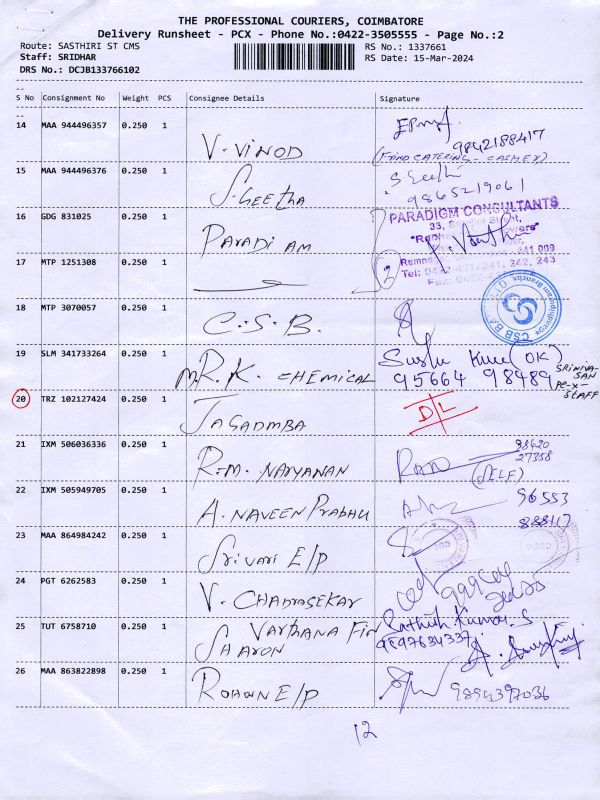 THE PROFESSIONAL COURIERS, COIMBATORE
Delivery Runsheet - PCX - Phone No.:0422-3505555 - Page No.:2
Route: SASTHIRI ST CMS RS No.: 1337661
Staff: SRIDHAR RS Date: 15-Mar-2024
DRS No.: DCJB133766102
S No Consignment No Weight PCS Consignee Details Signature
14 MAA 944496357 0.250 1 V. VINOD 9842188417
15 MAA 944496376 0.250 1 S. Geetha S Geetha 9865219061
16 GDG 831025 0.250 1 PARADI AM
PARADIGM CONSULTANTS
17 MTP 1251308 0.250 1 2
18 MTP 3070057 0.250 1 C.S.B.
CSB BANK LTD
19 SLM 341733264 0.250 1 M.R.K. CHEMICAL (OK) 95664 98489 SRINIVASAN STAFF
20 TRZ 102127424 0.250 1 JAGADMBA D/L
21 IXM 506036336 0.250 1 R.M. NARYANAN 27358 (SELF)
22 IXM 505949705 0.250 1 A. NAVEEN PRABHU 96553 888117
23 MAA 864984242 0.250 1 SRIVARI E/P
24 PGT 6262583 0.250 1 V. CHADRASEKAR
25 TUT 6758710 0.250 1 VARTHANA FIN SHARON Sathish Kumar. S 9597634337
26 MAA 863822898 0.250 1 ROHAN E/P 9894397036
12